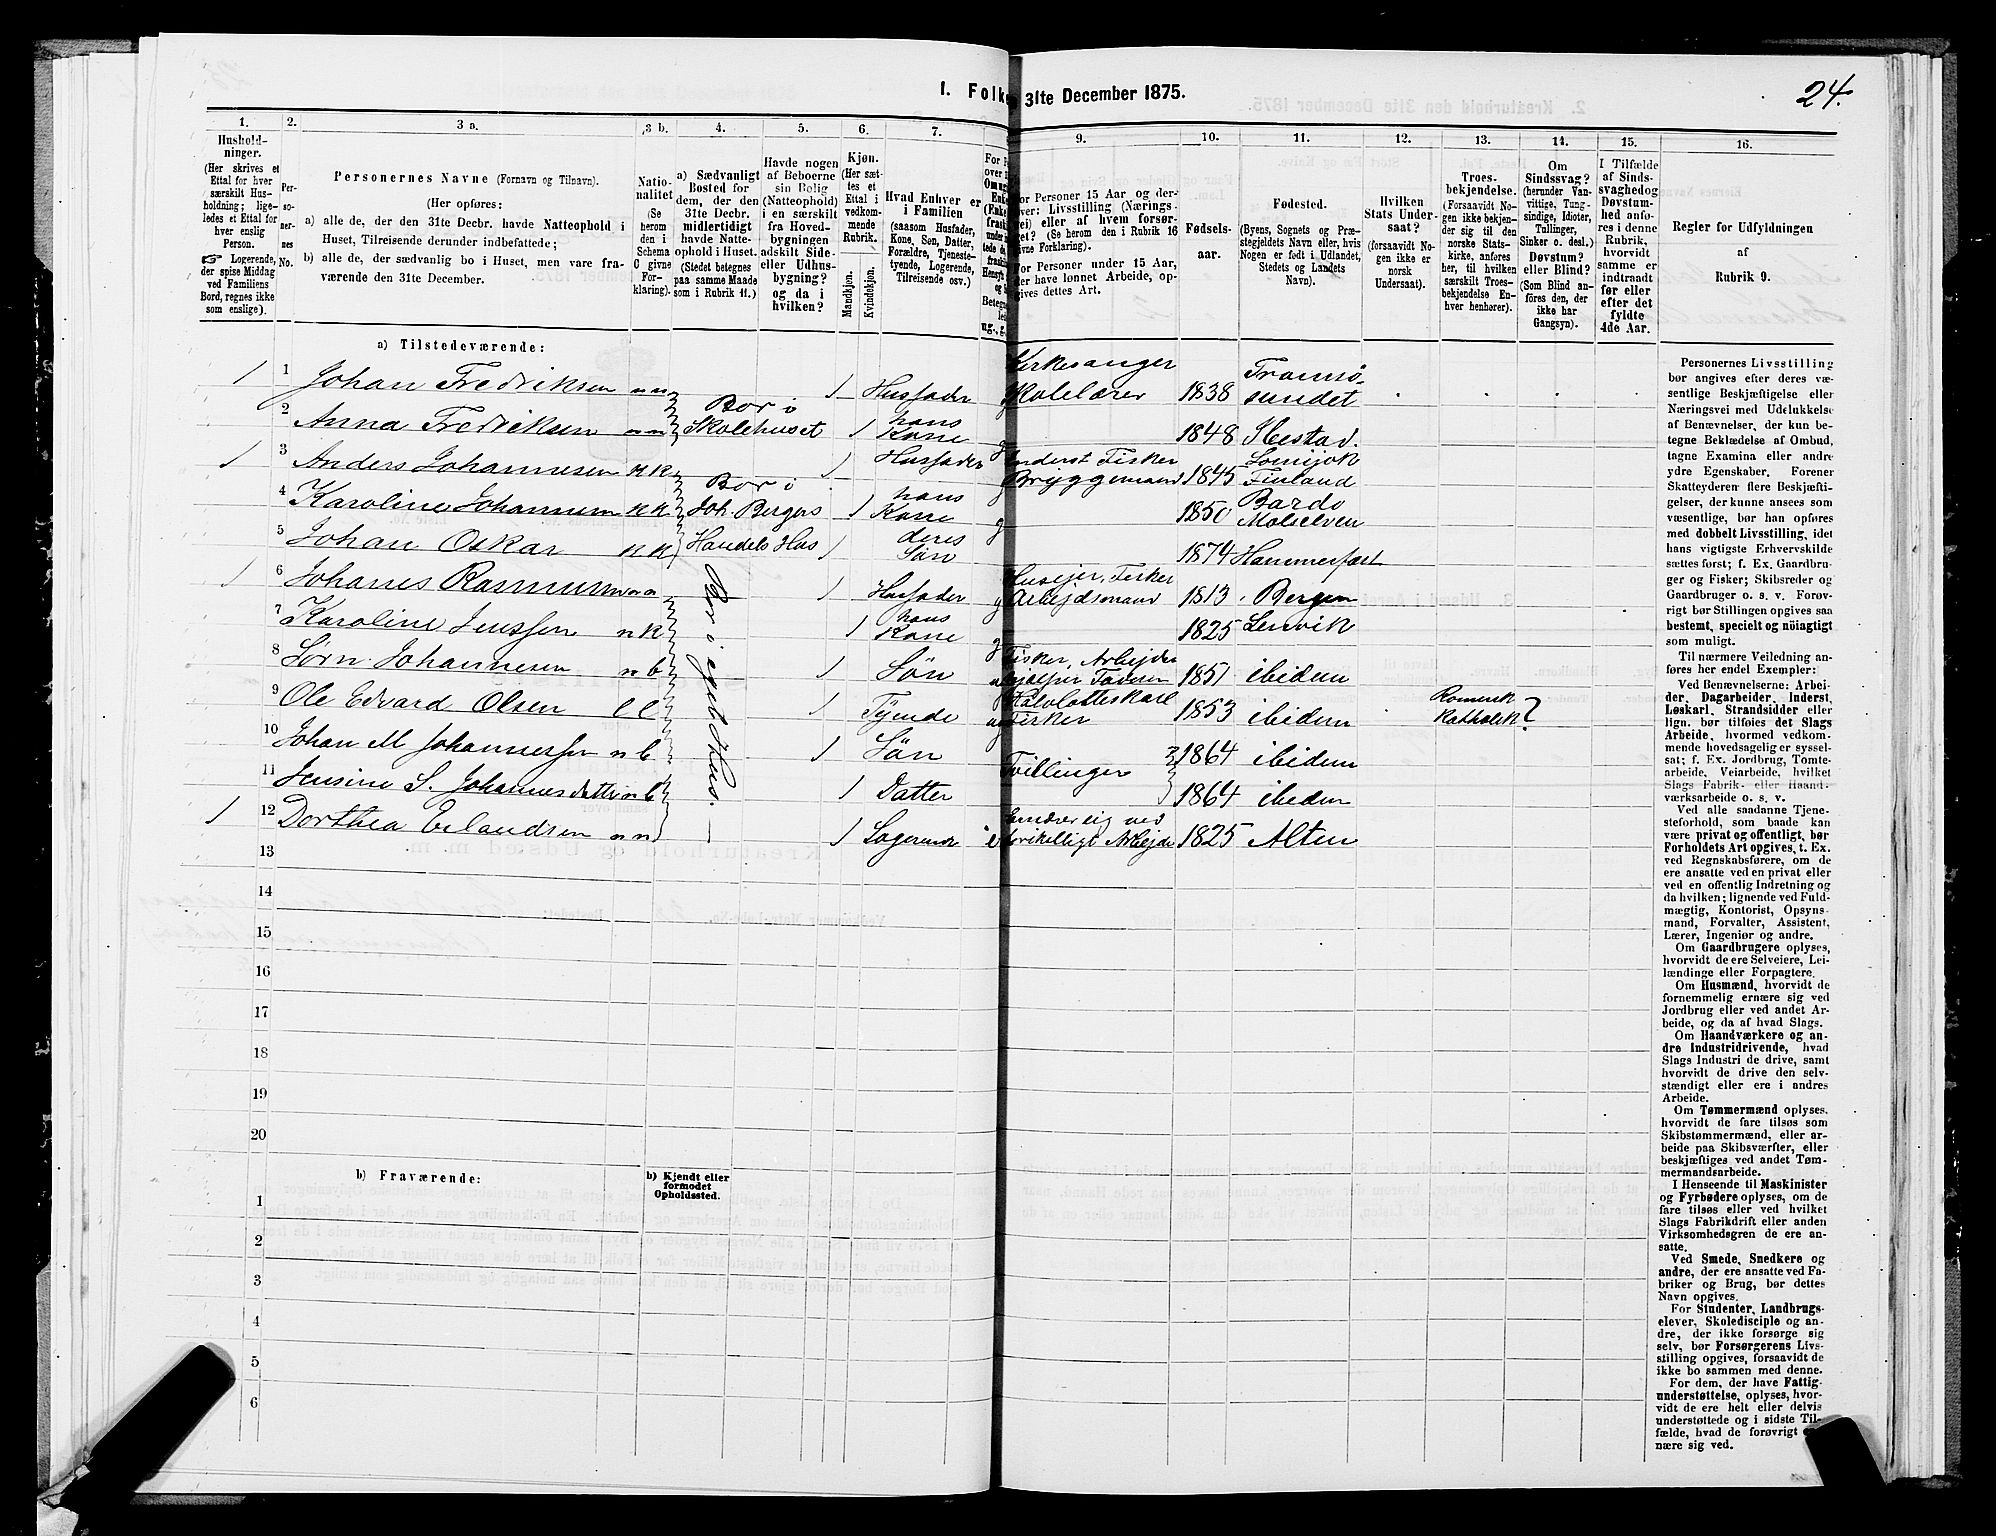 1. Folke 31te December 1875.
24.
1. 2. 3 a. 3 b. 4. 5. 6. 7. 9. 10. 11. 12. 13. 14. 15. 16.
Hushold-
ninger.
(Her skrives et
Ettal for hver
særskilt Hus-
holdning; lige-
ledes et Ettal for
hver enslig
Person.
☞ Logerende,
der spise Middag
ved Familiens
Bord, regnes ikke
som enslige).
Per-
so-
ner-
nes
No.
Personernes Navne (Fornavn og Tilnavn).
(Her opføres:
a) alle de, der den 31te Decbr. havde Natteophold i
Huset, Tilreisende derunder indbefattede;
b) alle de, der sædvanlig bo i Huset, men vare fra-
værende den 31te December.
Natio-
nalitet
(Se
herom
den i
Schema
C givne
For-
klaring).
a) Sædvanligt
Bosted for
dem, der den
31te Decbr.
midlertidigt
havde Natte-
ophold i Huset.
(Stedet betegnes
paa samme Maade
som i Rubrik 11.)
Havde nogen
af Beboerne
sin Bolig
(Natteophold)
i en særskilt
fra Hoved-
bygningen
adskilt Side-
eller Udhus-
bygning?
og da i
hvilken?
Kjøn.
(Her sæt-
tes et
Ettal i
vedkom-
mende
Rubrik.
Mandkjøn.
Kvindekjøn.
Hvad Enhver er
i Familien
(saasom Husfader,
Kone, Søn, Datter,
Forældre, Tjeneste-
tyende, Logerende,
Tilreisende osv.)
For Personer 15 Aar og der-
over: Livsstilling (Nærings-
vei) eller af hvem forsør-
get? (Se herom den i Rubrik 16
givne Forklaring).
For Personer under 15 Aar,
der have lønnet Arbeide, op-
gives dettes Art.
Fødsels-
aar.
Fødested.
(Byens, Sognets og Præ-
stegjeldets Navn eller, hvis
Nogen er født i Udlandet,
Stedets og Landets
Navn).
Hvilken
Stats Under-
saat?
(forsaavidt No-
gen ikke er
norsk
Undersaat).
Troes-
bekjendelse.
(Forsaavidt No-
gen ikke bekjen-
der sig til den
norske Stats-
kirke, anføres
her, til hvilken
særskilt Troes-
bekjendelse En-
hver henhører).
Om
Sindssvag?
(herunder Van-
vittige, Tung-
sindige, Idioter,
Tullinger,
Sinker o. desl.)
Døvstum?
eller Blind?
(Som Blind an-
føres den, der
ikke har
Gangsyn).
I Tilfælde
af Sinds-
svaghed og
Døvstum-
hed anfø-
res i denne
Rubrik,
hvorvidt
samme er
indtraadt
før eller
efter det
fyldte
4de Aar.
Regler for Udfyldningen
af
Rubrik 9.
a) Tilstedeværende:
1 1 Johan Fredriksen nn Bor i Skolehuset 1 Husfader Kirkesanger Skolelærer 1838 Tromsø-sundet
2 Anna Fredriksen nn 1 hans Kone 1848 Ibestad.
1 3 Anders Johannesen kk Bor i Joh. Bergers Handels Hus 1 Husfader Inderst Fisker Bryggemand 1845 Finland
4 Karoline Johannesen kk 1 hans Kone g 1850 Bardo Molselven
5 Johan Oskar kk 1 deres Søn 1874 Hammerfest
1 6 Johanes Rasmussen nn Bor i eget Hus. 1 Husfader Huseier, Fisker Arbejdsmand 1813 Bergen
7 Karoline Jenssen nk 1 hans Kone g 1825 Lenvik
8 Sørn Johannesen nb 1 Søn Fisker, Arbejder hjælper Faderen 1851 ibidem
9 Ole Edvard Olsen ll 1 Tyende Halvlotteskarl Fisker 1853 ibidem Romersk Katholsk?
10 Johan M Johannessen nb 1 Søn Tvillinger 1864 ibidem
11 Jensine S. Johannesdatter nb 1 Datter 1864 ibidem
1 12 Dorthea Erlandsen nn 1 Logerende Ernærer sig ved forskelligt Arbejde 1825 Alten
13
14
15
16
17
18
19
20
b) Fraværende:
b) Kjendt eller
formodet
Opholdssted.
1
2
3
4
5
6
Personernes Livsstilling
bør angives efter deres væ-
sentlige Beskjæftigelse eller
Næringsvei med Udelukkelse
af Benævnelser, der kun be-
tegne Beklædelse af Ombud,
tagne Examina eller andre
ydre Egenskaber. Forener
Skatteyderen flere Beskjæfti-
gelser, der kunne ansees som
væsentlige, bør han opføres
med dobbelt Livsstilling, idet
hans vigtigste Erhvervskilde
sættes først; f. Ex. Gaardbru-
ger og Fisker; Skibsreder og
Gaardbruger o. s. v. Forøv-
rigt bør Stillingen opgives saa
bestemt, specielt og nöiagtigt
som muligt.
Til nærmere Veiledning an-
føres her endel Exempler:
Ved Benævnelserne: Arbei-
der, Dagarbeider, Inderst,
Løskarl, Strandsidder eller
lign. bør tilføies det Slags
Arbeide, hvormed vedkom-
mende hovedsagelig er syssel-
sat; f. Ex. Jordbrug, Tomte-
arbeide, Veiarbeide, hvilket
Slags Fabrik- eller Haand-
værksarbeide o. s. v.
Ved alle saadanne Tjene-
steforhold, som baade kan
være privat og offentligt, bør
Forholdets Art opgives, t. Ex.
ved Regnskabsførere, om de
ere ansatte ved en privat eller
ved en offentlig Indretning og
da hvilken; lignende ved Fuld-
mægtig, Kontorist, Opsyns-
mand, Forvalter, Assistent,
Lærer, Ingeniør og andre.
Om Gaardbrugere oplyses,
hvorvidt de ere Selveiere, Lei-
lændinge eller Forpagtere.
Om Husmænd, hvorvidt de
fornemmelig ernære sig ved
Jordbrug eller ved andet Ar-
beide, og da af hvad Slags.
Om Haandværkere og an-
dre Industridrivende, hvad
Slags Industri de drive, samt
hvorvidt de drive den selv-
stændigt eller ere i andres
Arbeide.
Om Tømmermænd oplyses,
hvorvidt de fare tilsøs som
Skibstømmermænd, eller ar-
beide paa Skibsværfter, eller
beskjæftiges ved andet Tøm-
mermandsarbeide.
I Henseende til Maskinister
og Fyrbødere oplyses, om de
fare tilsøs eller ved hvilket
Slags Fabrikdrift eller anden
Virksomhedsgren de ere an-
satte.
Ved Smede, Snedkere og
andre, der ere ansatte ved Fa-
briker og Brug, bør dettes
Navn opgives.
For Studenter, Landbrugs-
elever, Skoledisciple og an-
dre, der ikke forsørge sig
selv, bør Forsørgerens Livs-
stilling opgives, forsaavidt de
ikke bo sammen med denne.
For dem, der have Fattig-
understøttelse, oplyses, hvor-
vidt de ere helt eller delvis
understøttede og i sidste Til-
fælde, hvad de forøvrigt er-
nære sig ved.